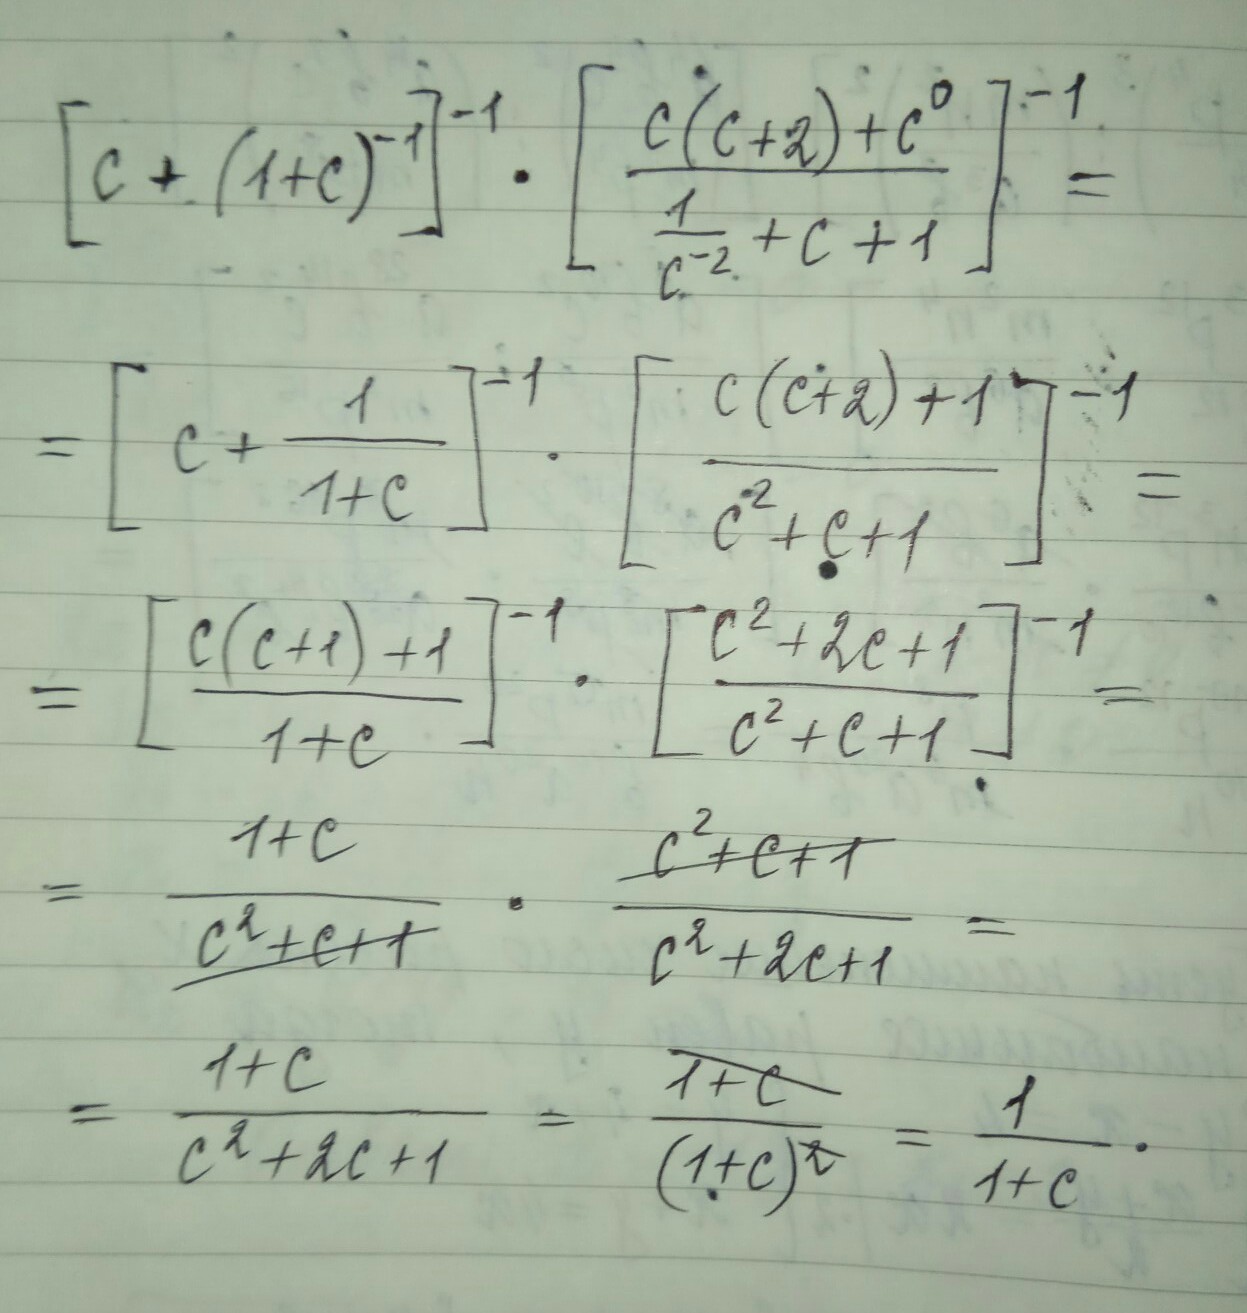 [c + (1+c)^{-1}]^{-1} · [\frac{c(c+2)+c^0}{\frac{1}{c^{-2}}+c+1}]^{-1} =
= [c + \frac{1}{1+c}]^{-1} · [\frac{c(c+2)+1}{c^2+c+1}]^{-1} =
= [\frac{c(c+1)+1}{1+c}]^{-1} · [\frac{c^2+2c+1}{c^2+c+1}]^{-1} =
= \frac{1+c}{c^2+c+1} · \frac{c^2+c+1}{c^2+2c+1} =
= \frac{1+c}{c^2+2c+1} = \frac{1+c}{(1+c)^2} = \frac{1}{1+c} .